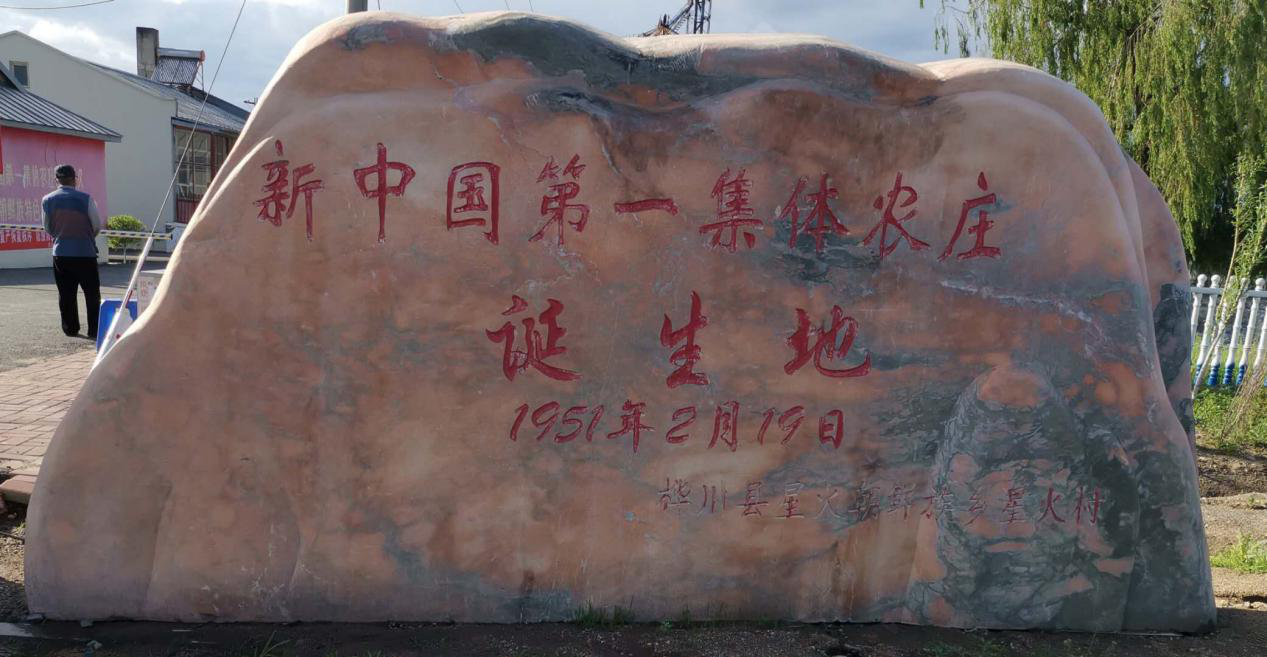 新中国第一集体农庄
诞生地
1951年2月19日
桦川县星火朝鲜族乡星火村